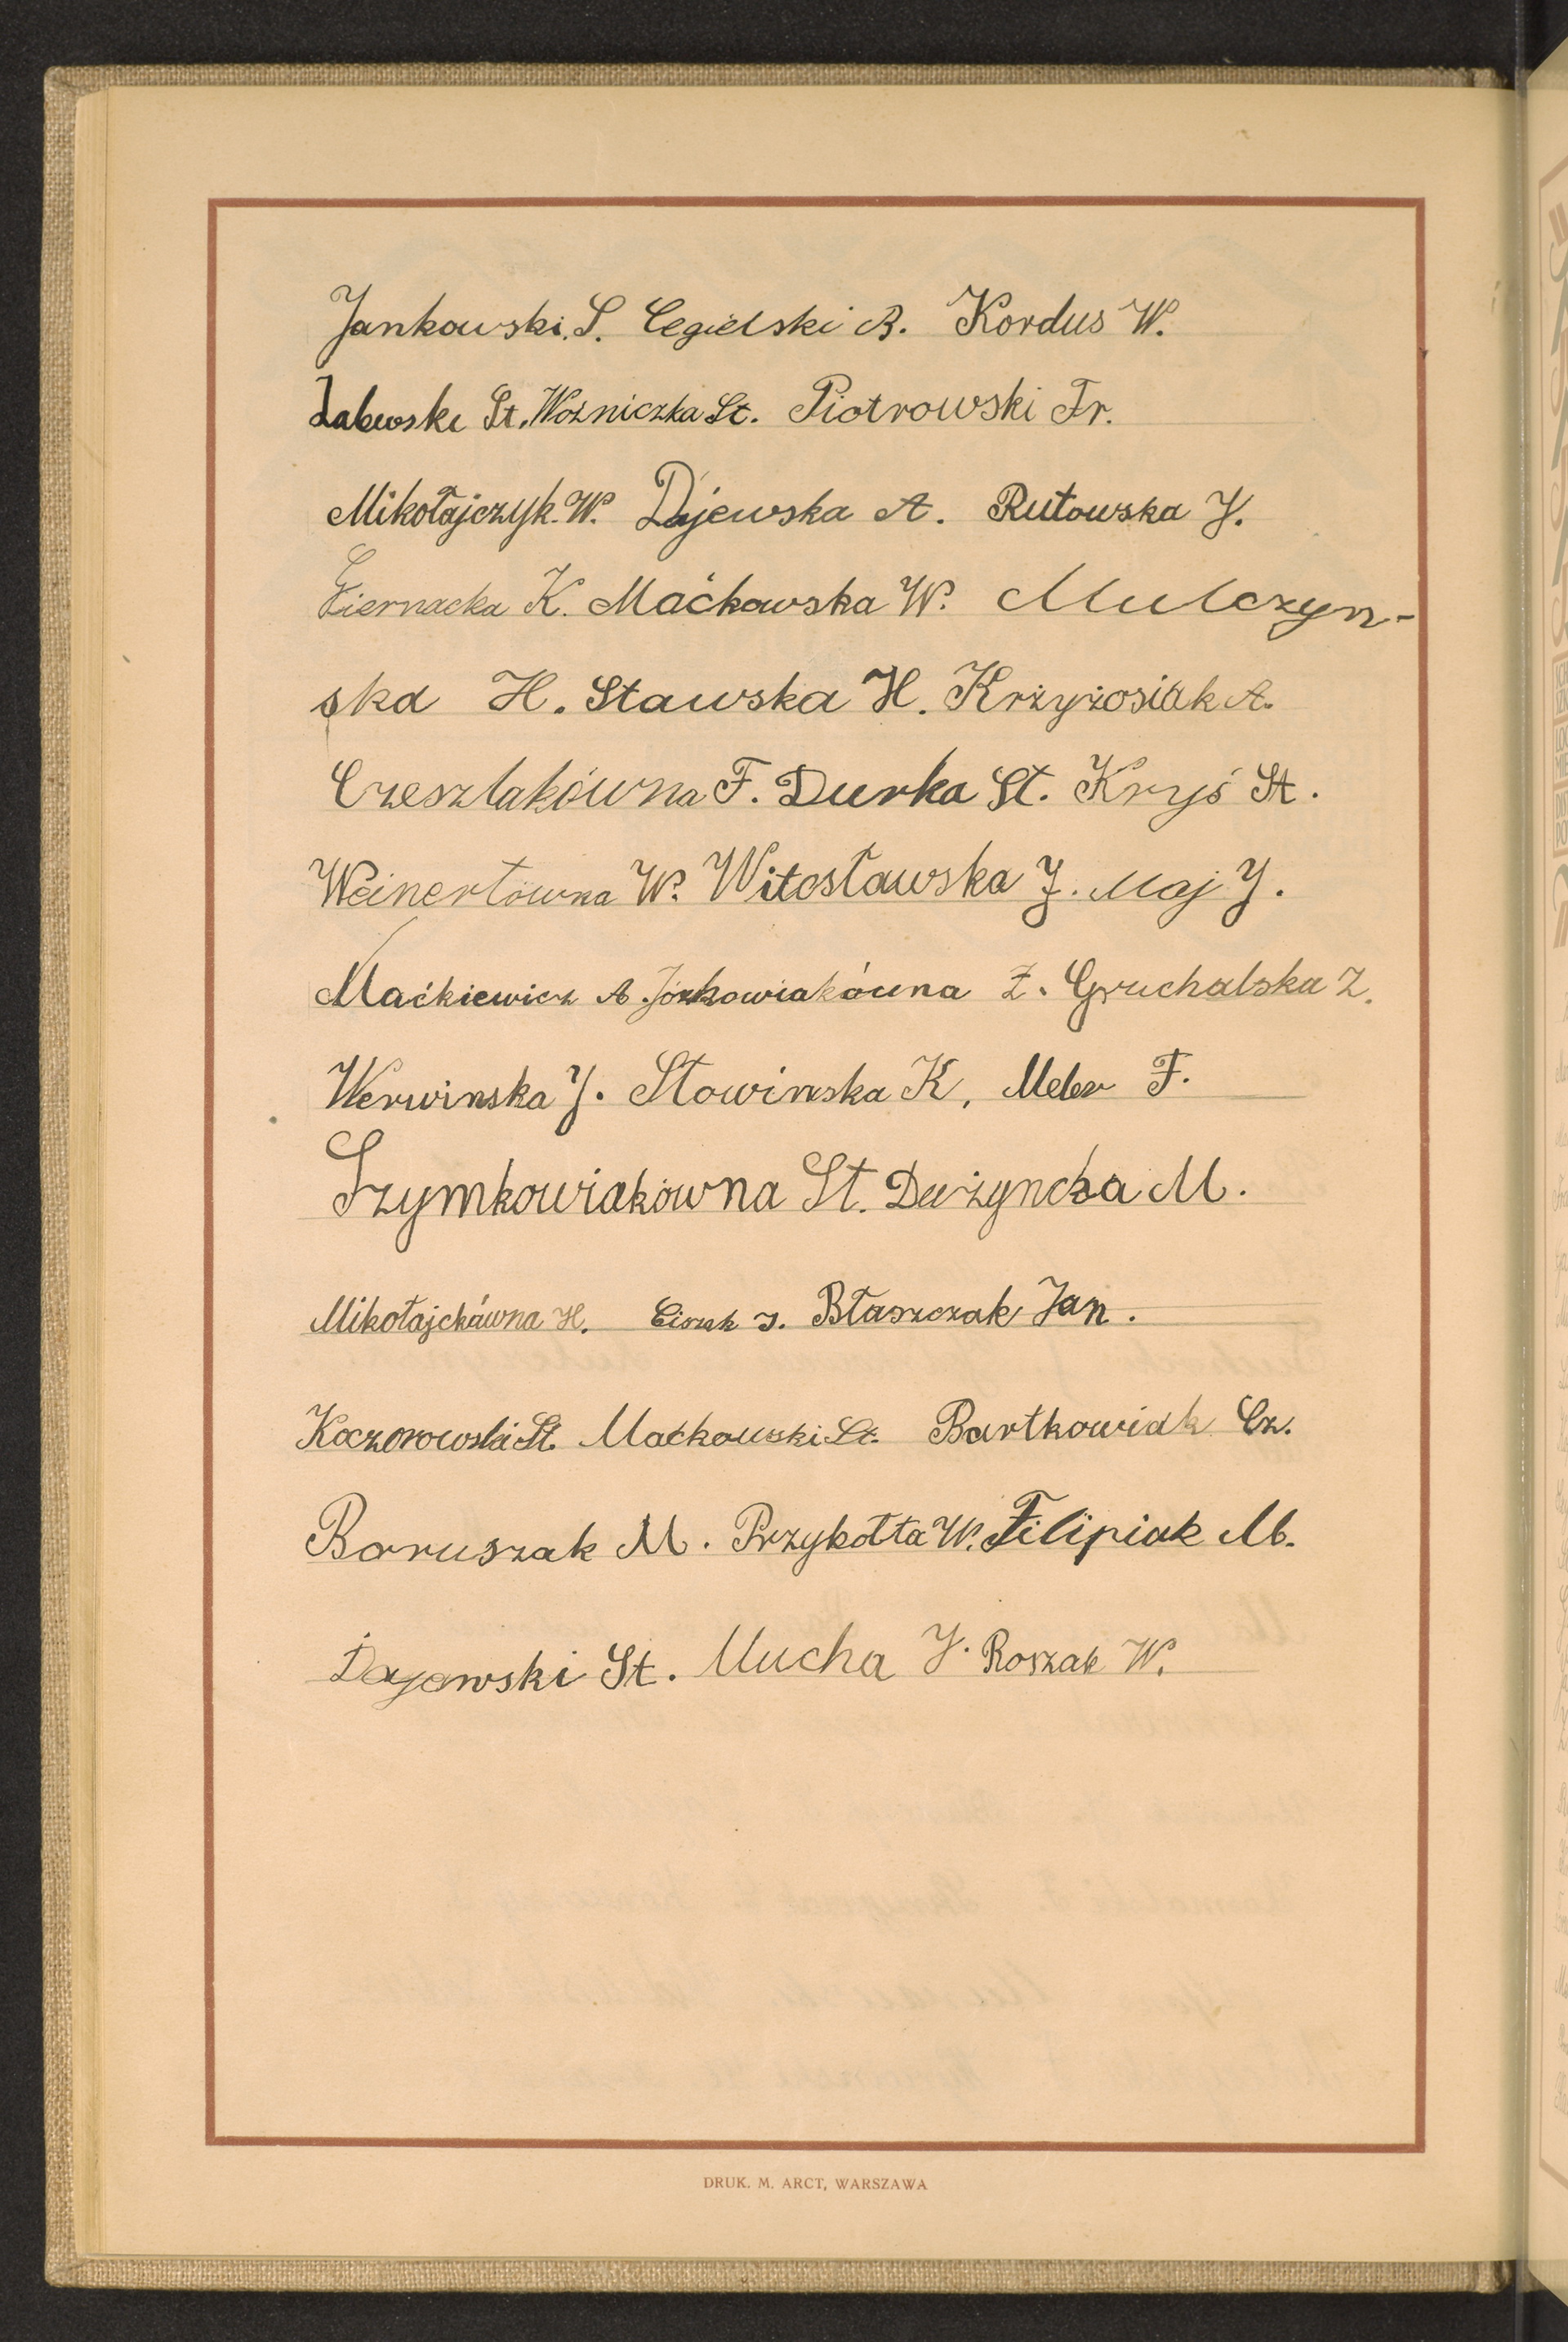 Jankowski. S. Cegielski B. Kordus W.
St. Woźniczka St. Piotrowski Fr.
Mikołajczyk. W. Dajewska A. Rutowska J.
Biernacka K. Maćkowska W. Mulczyn-
ska H. Stawska H. Krzyżosiak A.
Czeszlakówna F. Durka St. Kryś St.
Weinertówna W. Witosławska J. Maj J.
Maćkiewicz A. Józkowiakówna Z. Gruchalska Z.
Werwinska J. Słowinska K. Meler F.
Szymkowiakówna St. M.
Mikołajckówna H. Ciszak J. Błaszczak Jan.
Koczorowski St. Maćkowski St. Bartkowiak Cz.
Boruszak M. Przykotta W. Filipiak M.
Dajewski St. Mucha J. Roszak W.
DRUK. M. ARCT, WARSZAWA